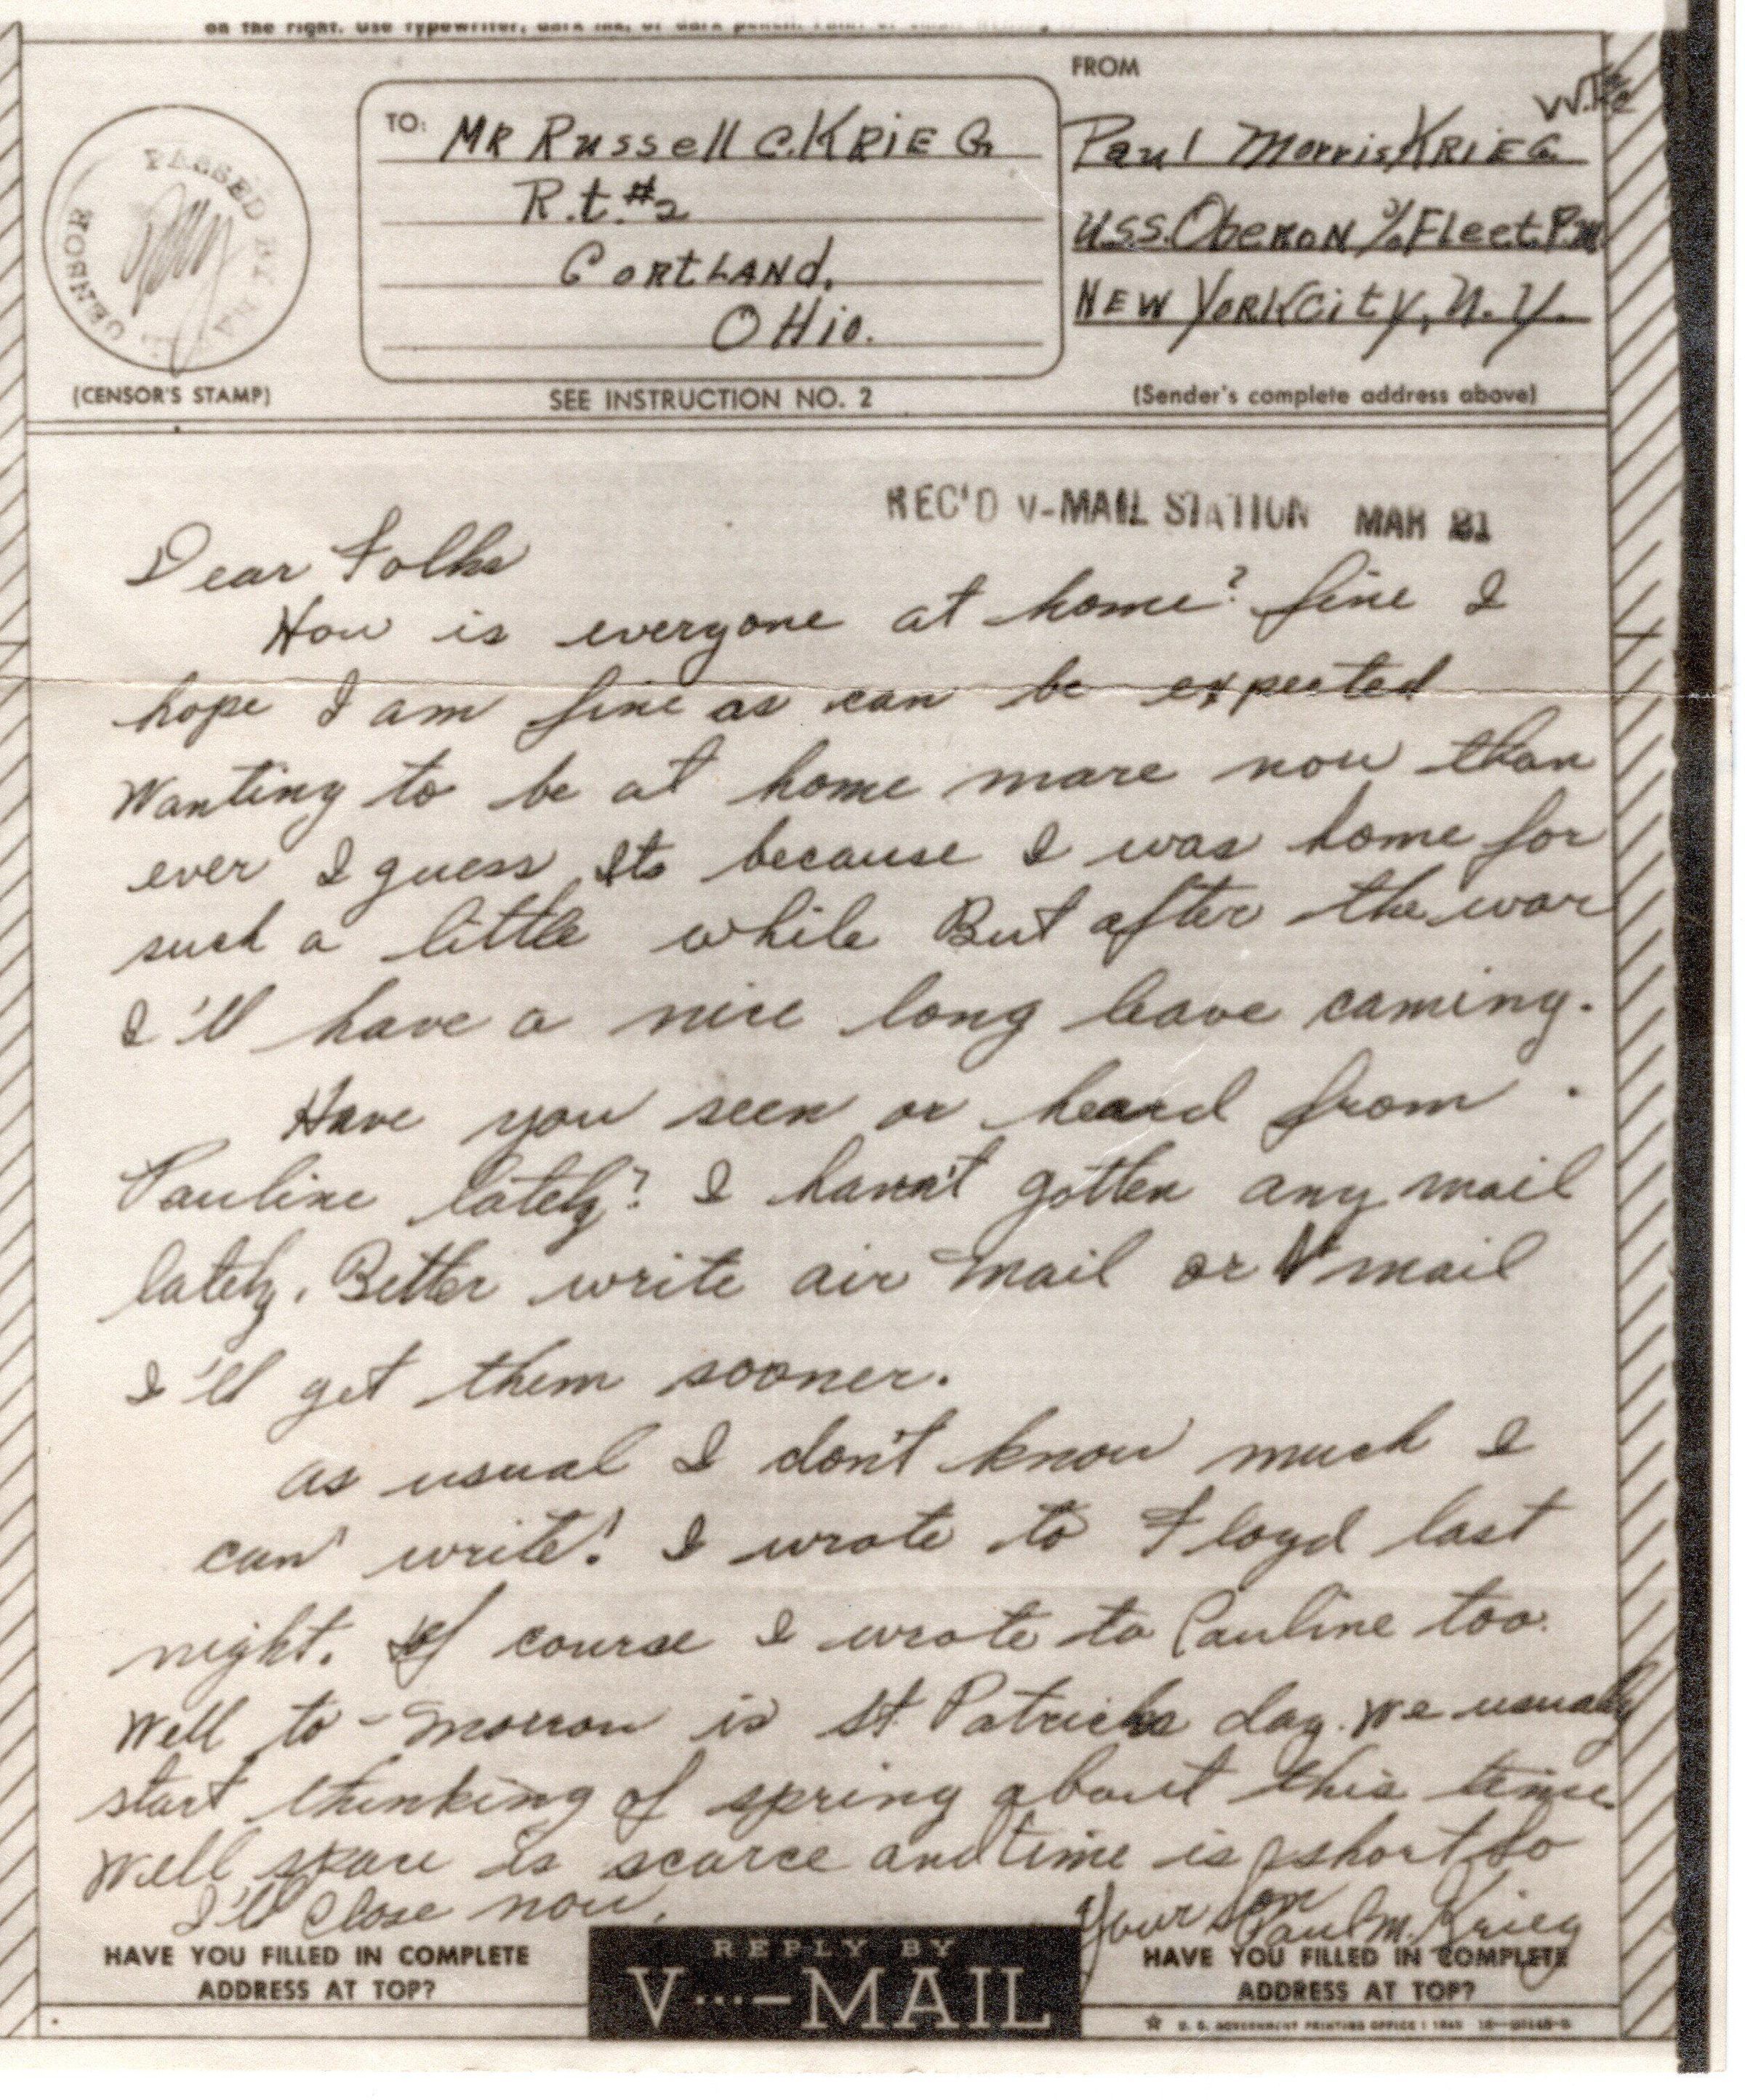 on the right. Use typewriter, dark ink, or dark pencil.
FROM
W.T.
PASSED BY NAVAL CENSOR
TO: MR Russell C. KRIEG
R.t. #2
CORTLAND,
OHio.
Paul Morris KRIEG
U.S.S. OBERON % Fleet P.M.
NEW YORK City, N.Y.
(CENSOR'S STAMP)
SEE INSTRUCTION NO. 2
(Sender's complete address above)
REC'D V-MAIL STATION MAR 21
Dear Folks
How is everyone at home? fine I
hope I am fine as can be expected
Wanting to be at home more now than
ever I guess Its because I was home for
such a little while But after the war
I'll have a nice long leave coming.
Have you seen or heard from
Pauline lately? I havn't gotten any mail
lately. Better write air mail or V mail
I'll get them sooner.
as usual I don't know much I
can write! I wrote to Floyd last
night. Of course I wrote to Pauline too.
Well to-morrow is St Patricks day. We usually
start thinking of spring about this time.
Well space is scarce and time is short So
I'll Close now.
Your Son
Paul M. Krieg
HAVE YOU FILLED IN COMPLETE
ADDRESS AT TOP?
REPLY BY
V···—MAIL
HAVE YOU FILLED IN COMPLETE
ADDRESS AT TOP?
U. S. GOVERNMENT PRINTING OFFICE : 1943